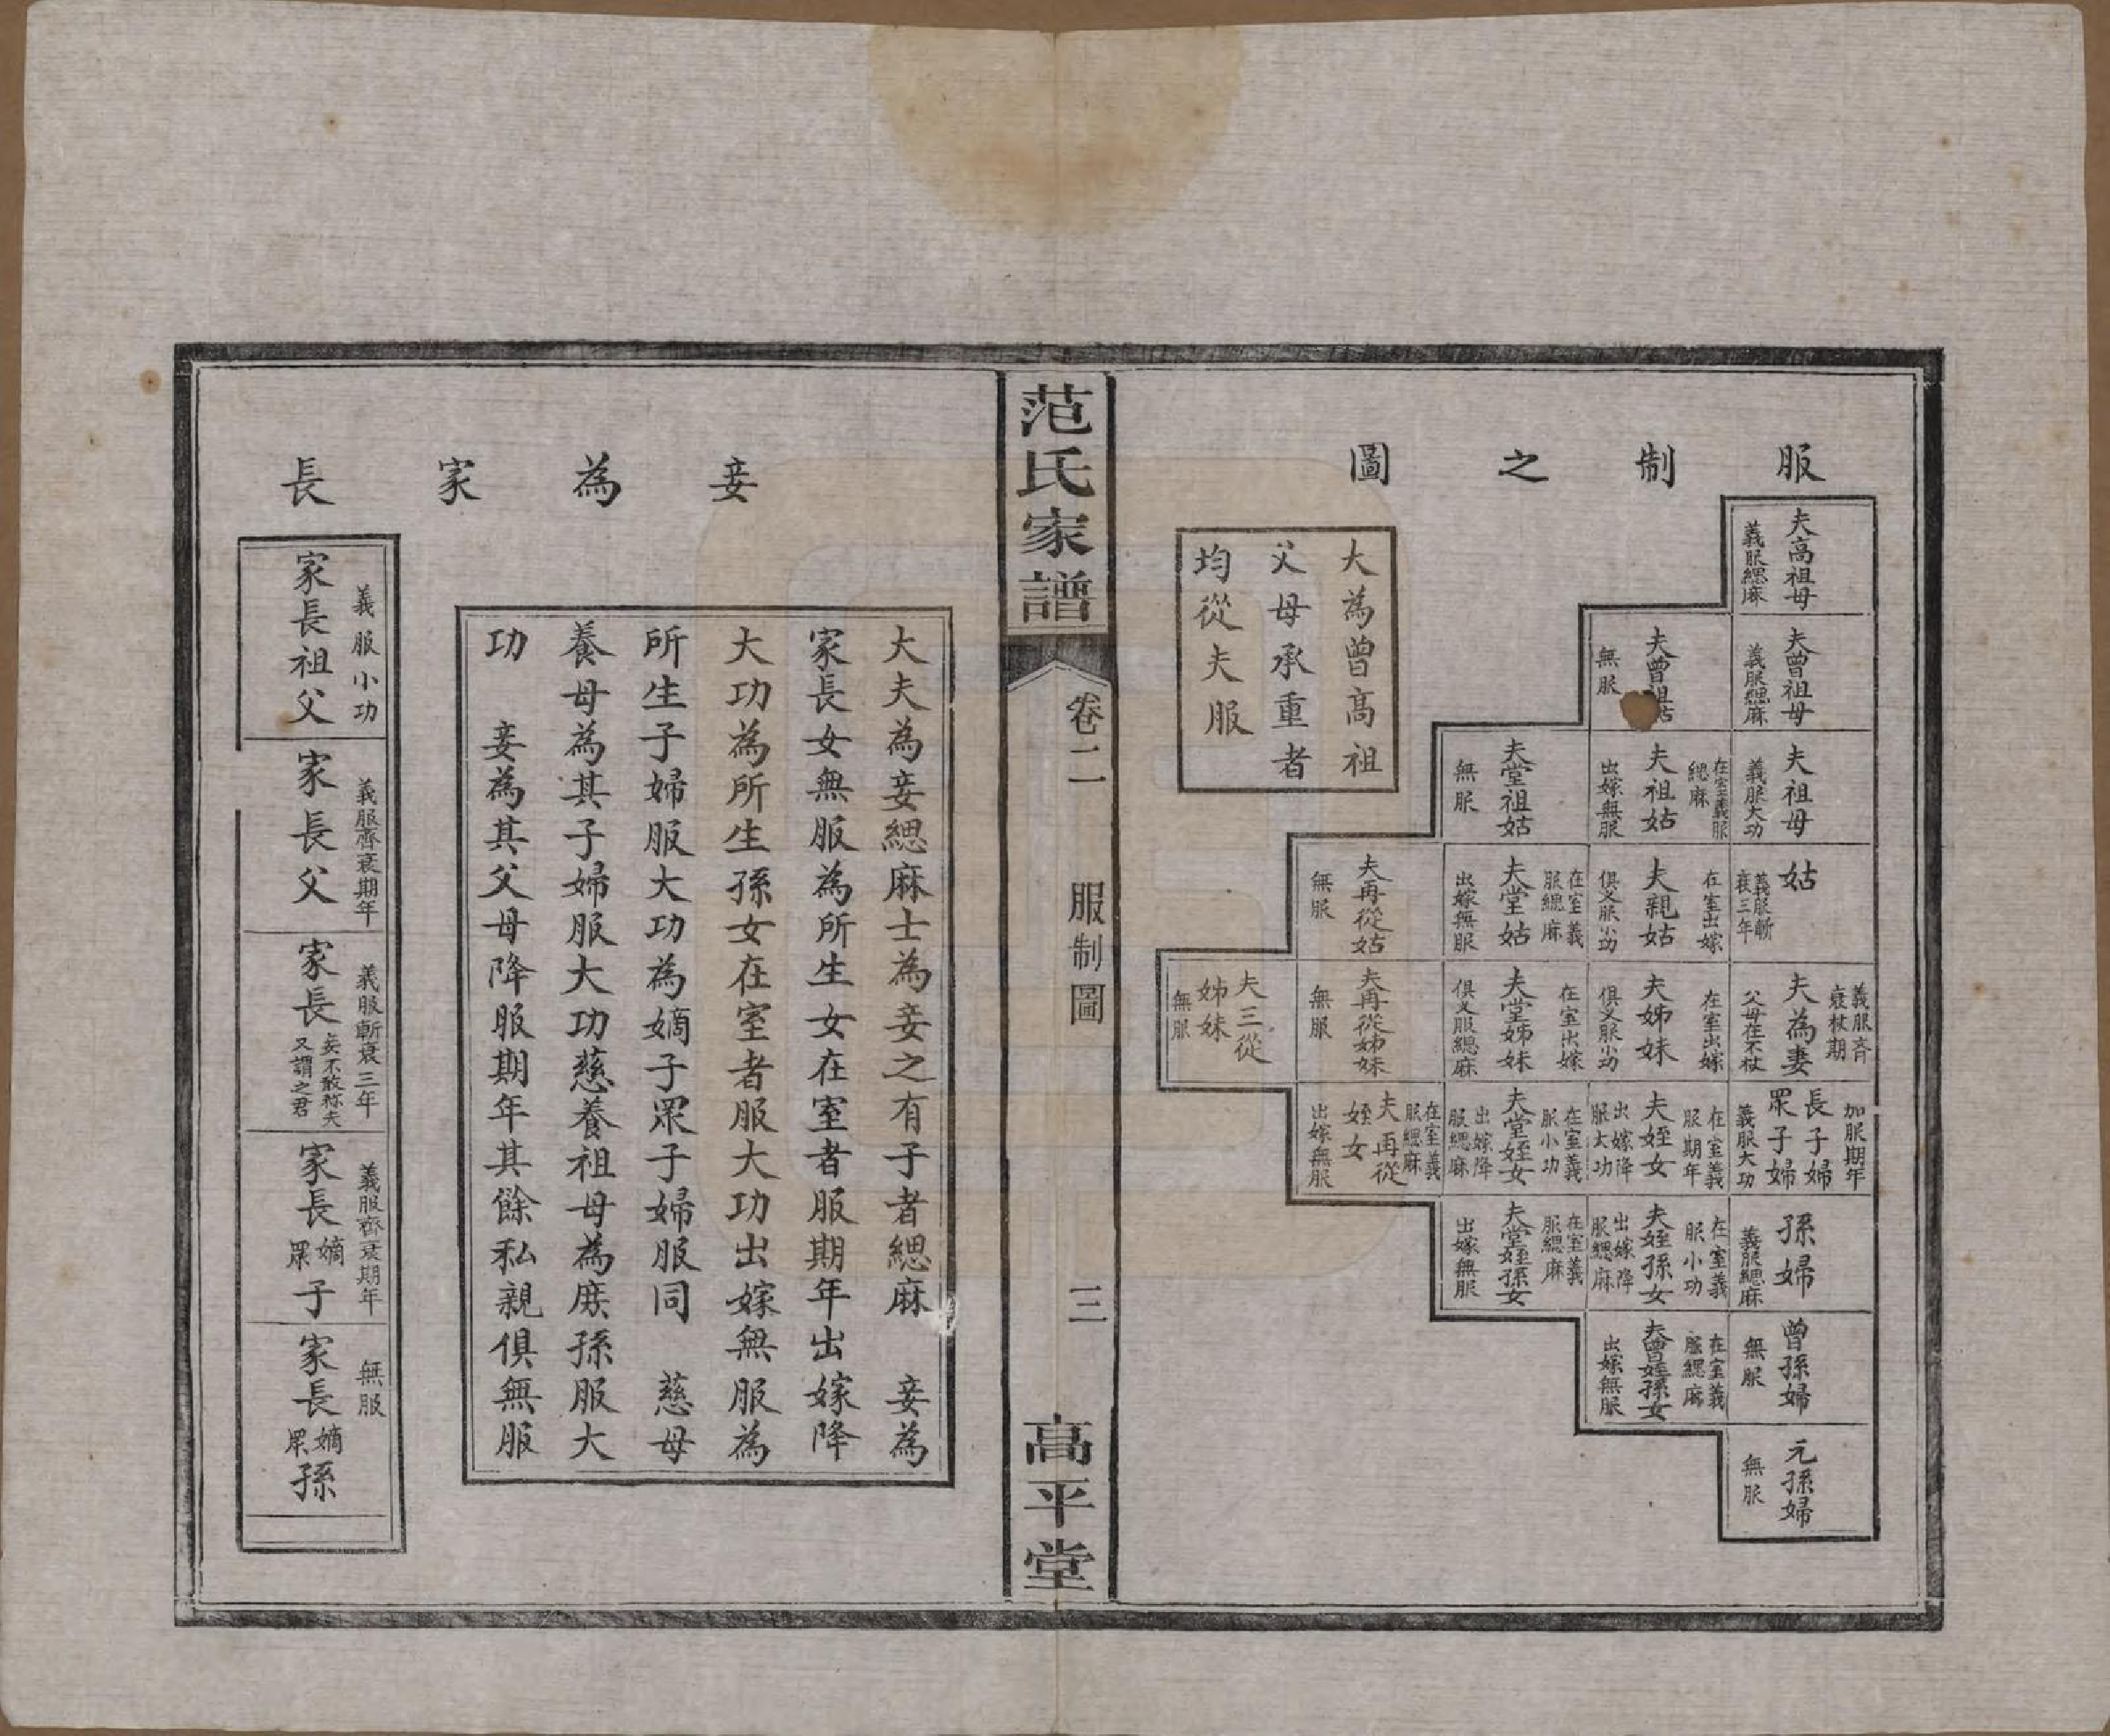 服制之圖
夫高祖母
義服緦麻
夫曾祖母
義服緦麻
夫祖母
義服大功
姑
義服斬
衰三年
義服齊
衰杖期
夫為妻
父母在不杖
加服期年
長子婦
眾子婦
義服大功
孫婦
義服緦麻
曾孫婦
無服
元孫婦
無服
夫曾祖姑
無服
在室義服
緦麻
夫祖姑
出嫁無服
在室出嫁
夫親姑
俱义服小功
在室出嫁
夫姊妹
俱义服小功
在室義
服期年
夫姪女
出嫁降
服大功
在室義
服小功
夫姪孫女
出嫁降
服緦麻
在室義
服緦麻
夫曾姪孫女
出嫁無服
夫堂祖姑
無服
在室義
服緦麻
夫堂姑
出嫁無服
在室出嫁
夫堂姊妹
俱义服緦麻
在室義
服小功
夫堂姪女
出嫁降
服緦麻
在室義
服緦麻
夫堂姪孫女
出嫁無服
夫再從姑
無服
夫再從姊妹
無服
在室義
服緦麻
夫再從
姪女
出嫁無服
夫三從
姊妹
無服
大為曾高祖
父母承重者
均從夫服
范氏家譜
卷二
服制圖
三
高平堂
妾為家長
大夫為妾緦麻士為妾之有子者緦麻　妾為
家長女無服為所生女在室者服期年出嫁降
大功為所生孫女在室者服大功出嫁無服為
所生子婦服大功為嫡子眾子婦服同　慈母
養母為其子婦服大功慈養祖母為庶孫服大
功　妾為其父母降服期年其餘私親俱無服
義服小功
家長祖父
義服齊衰期年
家長父
義服斬衰三年
家長妾不敢称夫又謂之君
義服齊衰期年
家長嫡眾子
無服
家長嫡眾孫